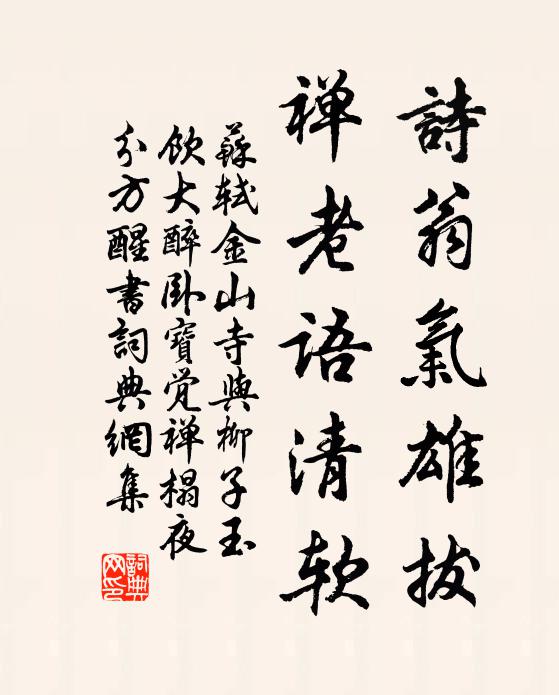 詩翁氣雄拔
禅老语清软
蘇轼金山寺與柳子玉
飲大醉卧寶覚禅榻夜
分方醒書詞典網集
詞典
网印